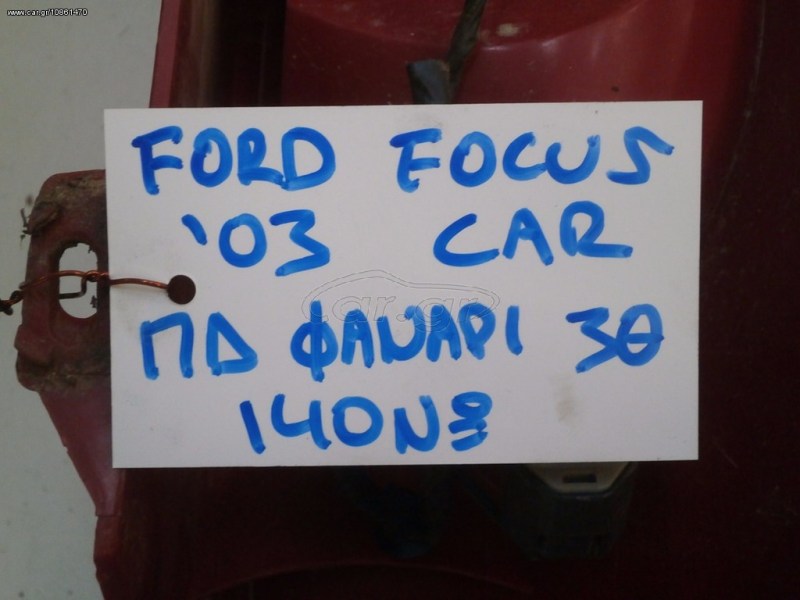 www.car.gr/10861470
FORD FOCUS
'03 CAR
car.gr
ΠΔ ΦΑΝΑΡΙ 3Θ
140N